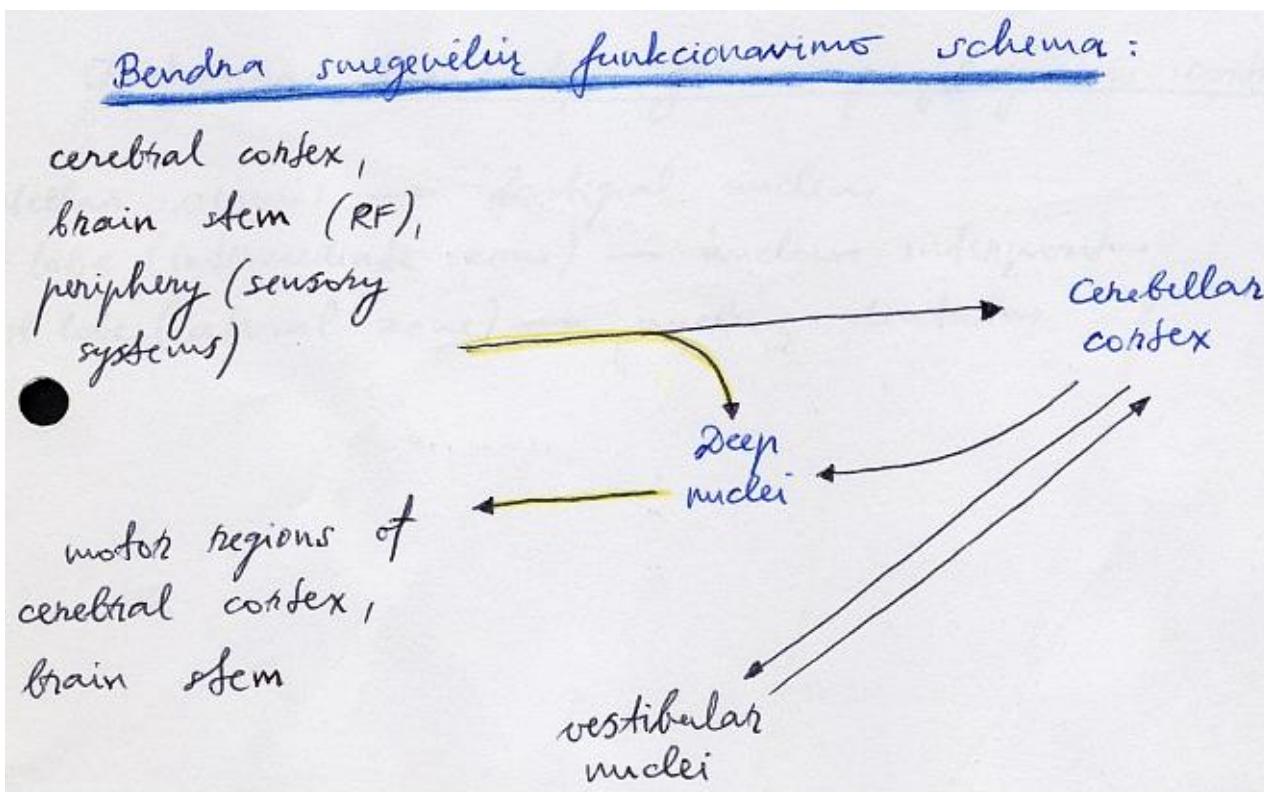 Bendra smegenėlių funkcionavimo schema:
cerebral cortex,
brain stem (RF),
periphery (sensory
systems)
Cerebellar
cortex
Deep
nuclei
motor regions of
cerebral cortex,
brain stem
vestibular
nuclei